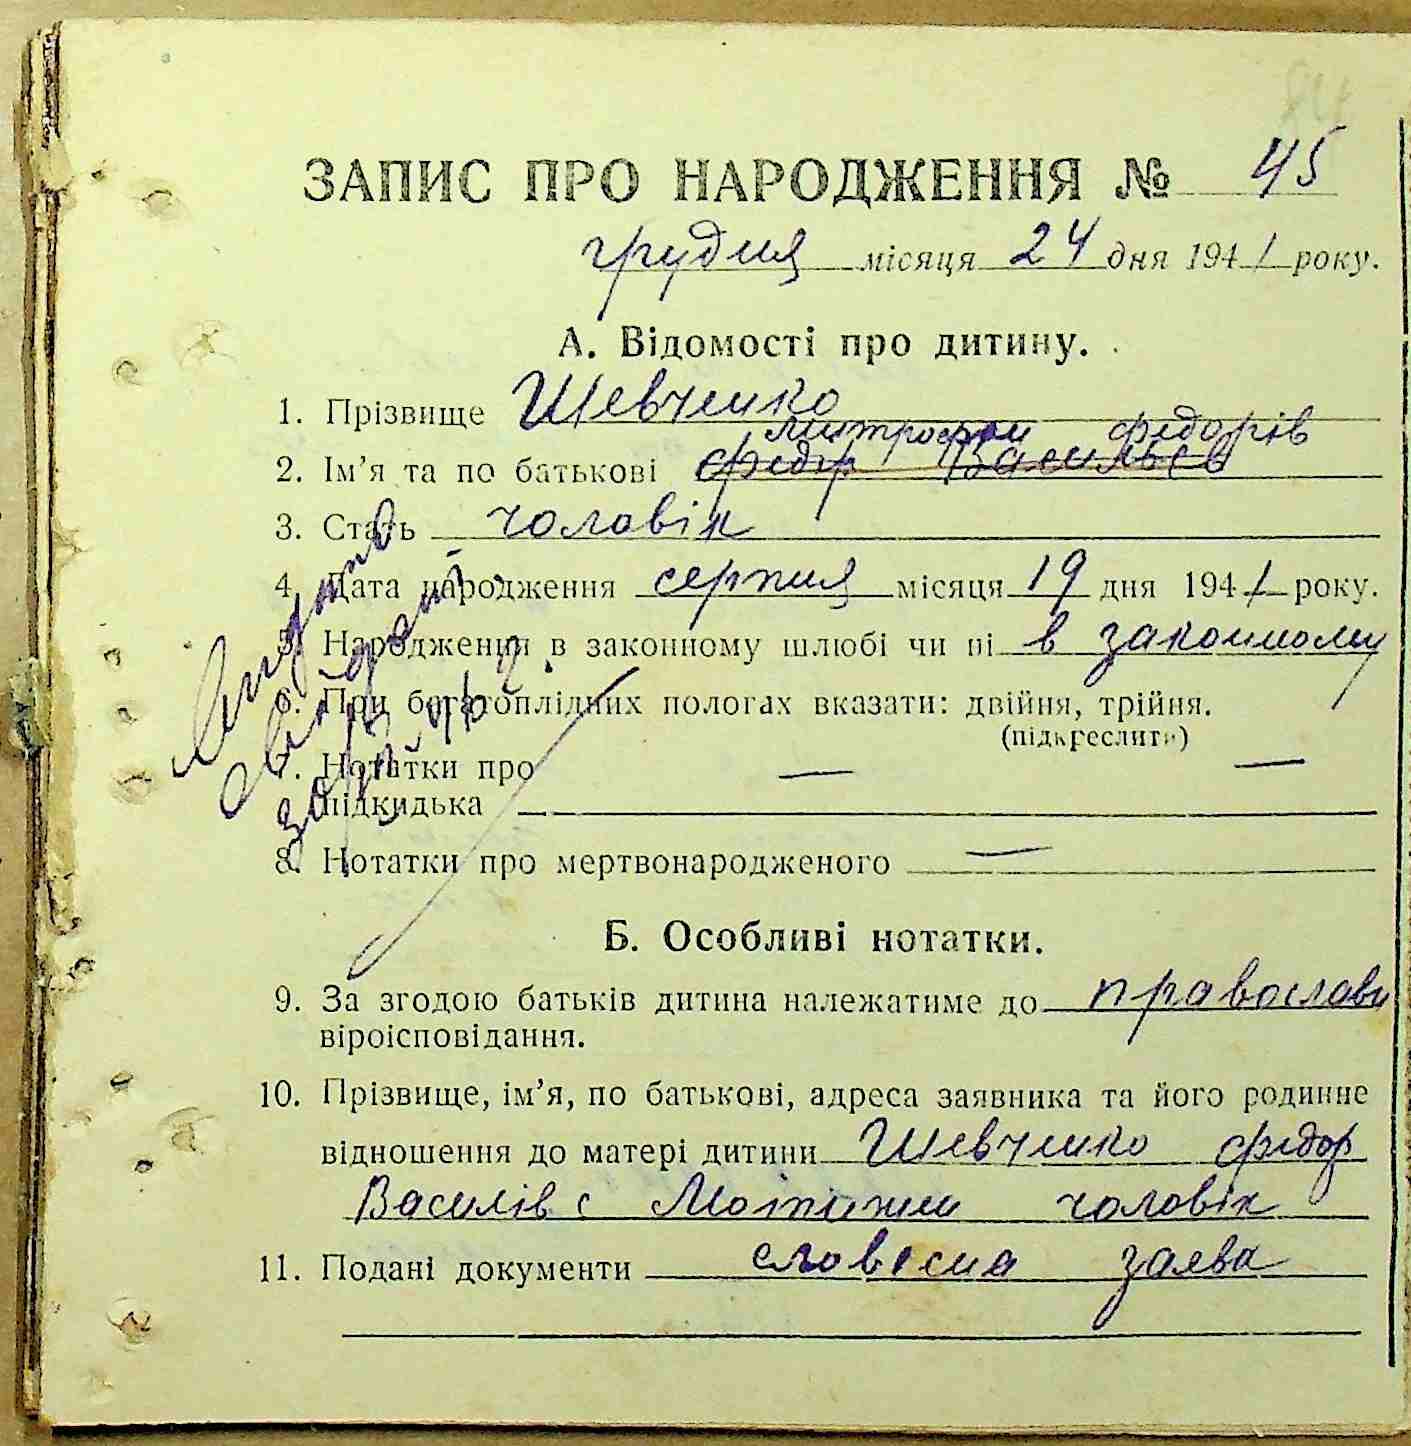 ЗАПИС ПРО НАРОДЖЕННЯ № 45
грудня місяця 24 дня 1941 року.
А. Відомості про дитину.
1. Прізвище Шевченко
Митрофан Федорів
2. Ім'я та по батькові Федір Васильєв
3. Стать чоловік
4. Дата народження серпня місяця 19 дня 1941 року.
5. Народження в законному шлюбі чи ні в законному
6. При богатоплідних пологах вказати: двійня, трійня.
(підкреслити)
7. Нотатки про —  —
підкидька
8. Нотатки про мертвонародженого —
Б. Особливі нотатки.
9. За згодою батьків дитина належатиме до православн
віроісповідання.
10. Прізвище, ім'я, по батькові, адреса заявника та його родинне
відношення до матері дитини Шевченко Федор
Василів с чоловік
11. Подані документи словесна заява